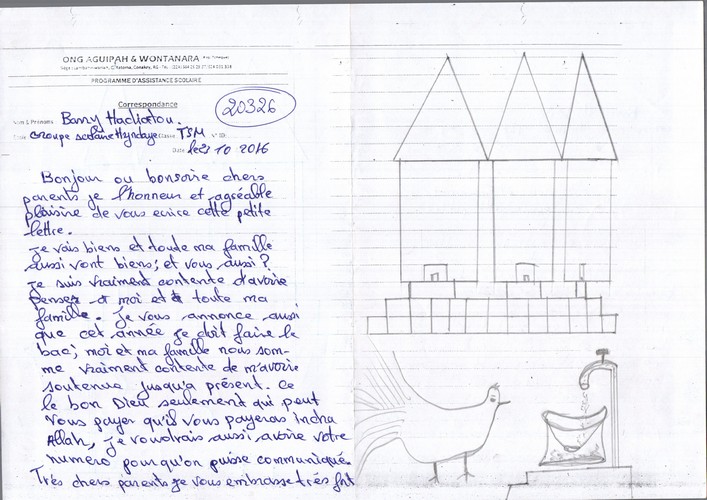 ONG AGUIPAH & WONTANARA
PROGRAMME D'ASSISTANCE SCOLAIRE
Correspondance
20326
Nom & Prénoms Barry Hadiatou.
Groupe scolaire Hyndaye Classe TSM N°
Date le 21 10 2016
Bonjour ou bonsoire chers
parents je l'honneur et agréable
plaisire de vous ecrire cette petite
lettre.
Je vais biens et toute ma famille
aussi vont biens; et vous aussi?
Je suis vraiment contente d'avoire
Pensez a moi et à toute ma
famille. Je vous annonce aussi
que cet année je doit faire le
bac; moi et ma famille nous som-
me vraiment contente de m'avoire
soutenue jusqu'a présent. Ce
le bon Dieu seulement qui peut
vous payer qu'il vous payeras incha
Allah, je voudrais aussi avoire votre
numero pour qu'on puisse communiqué.
Très chers parents je vous embrasse très fort